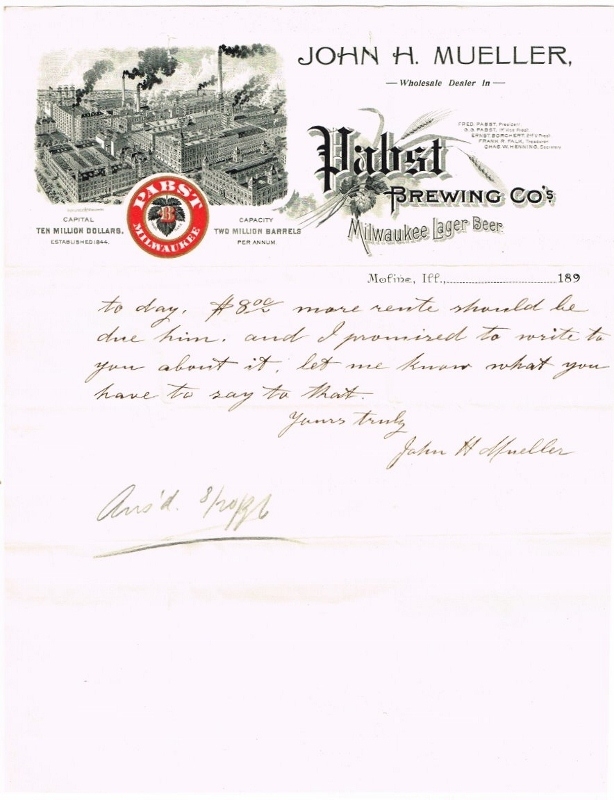 JOHN H. MUELLER,
— Wholesale Dealer In —
Pabst
BREWING CO'S
Milwaukee Lager Beer
FRED. PABST, President
G.G. PABST, 1st Vice Prest
ERNST BORCHERT, 2nd V. Prest
FRANK R. FALK, Treasurer
CHAS. W. HENNING, Secretary
PABST
B
MILWAUKEE
CAPITAL
TEN MILLION DOLLARS.
ESTABLISHED 1844.
CAPACITY
TWO MILLION BARRELS
PER ANNUM.
Moline, Ill., 189
to day, $8.00 more rente should be
due him. and I promised to write to
you about it, let me know what you
have to say to that.
Yours truly
John H Mueller
Ans'd. 8/20/96